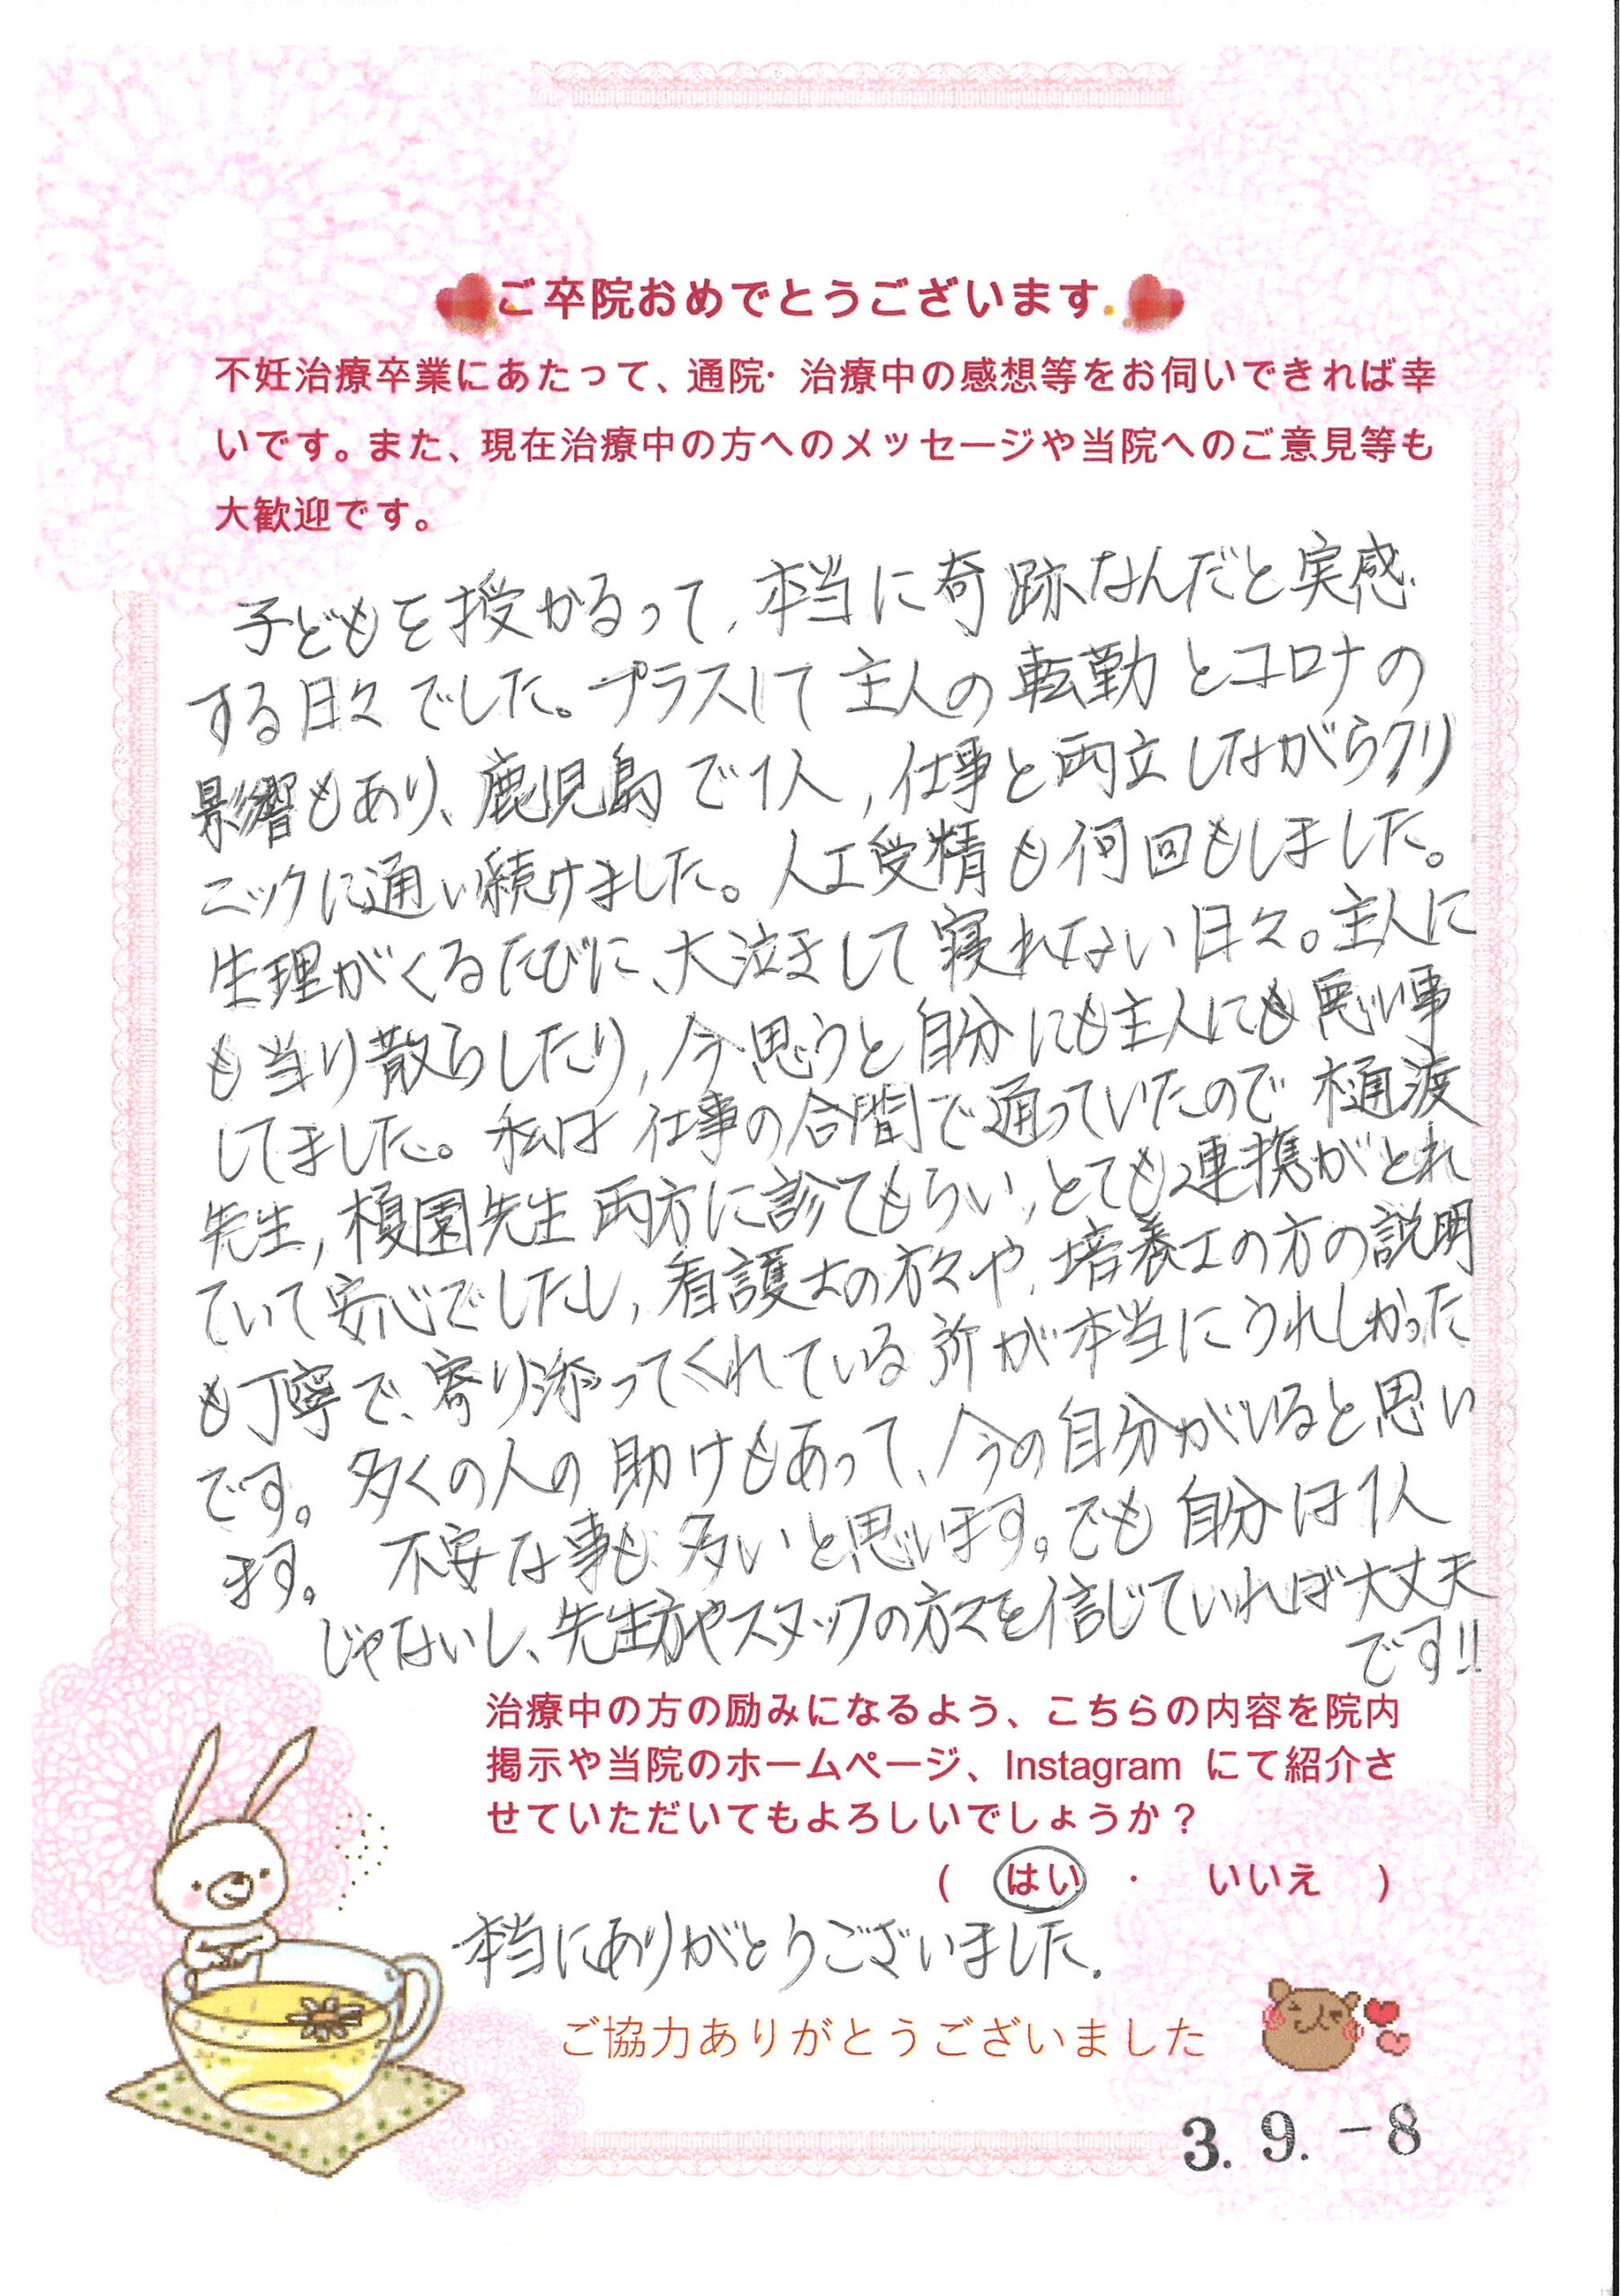 ご卒院おめでとうございます
不妊治療卒業にあたって、通院・治療中の感想等をお伺いできれば幸
いです。また、現在治療中の方へのメッセージや当院へのご意見等も
大歓迎です。
子どもを授かるって、本当に奇跡なんだと実感
する日々でした。プラスして主人の転勤とコロナの
影響もあり、鹿児島で1人、仕事と両立しながらクリ
ニックに通い続けました。人工受精も何回もしました。
生理がくるたびに、大泣きして寝れない日々。主人に
も当り散らしたり、今思うと自分にも主人にも悪い事
してました。私は仕事の合間で通っていたので樋渡
先生、榎園先生両方に診てもらい、とても連携がとれ
ていて安心でしたし、看護士の方々や、培養士の方の説明
も丁寧で、寄り添ってくれている所が本当にうれしかった
です。多くの人の助けもあって、今の自分がいると思い
ます。不安な事も多いと思います。でも自分は1人
じゃないし、先生方やスタッフの方々を信じていれば大丈夫
です!!
治療中の方の励みになるよう、こちらの内容を院内
掲示や当院のホームページ、Instagram にて紹介さ
せていただいてもよろしいでしょうか？
( はい ・ いいえ )
本当にありがとうございました.
ご協力ありがとうございました
3. 9. -8